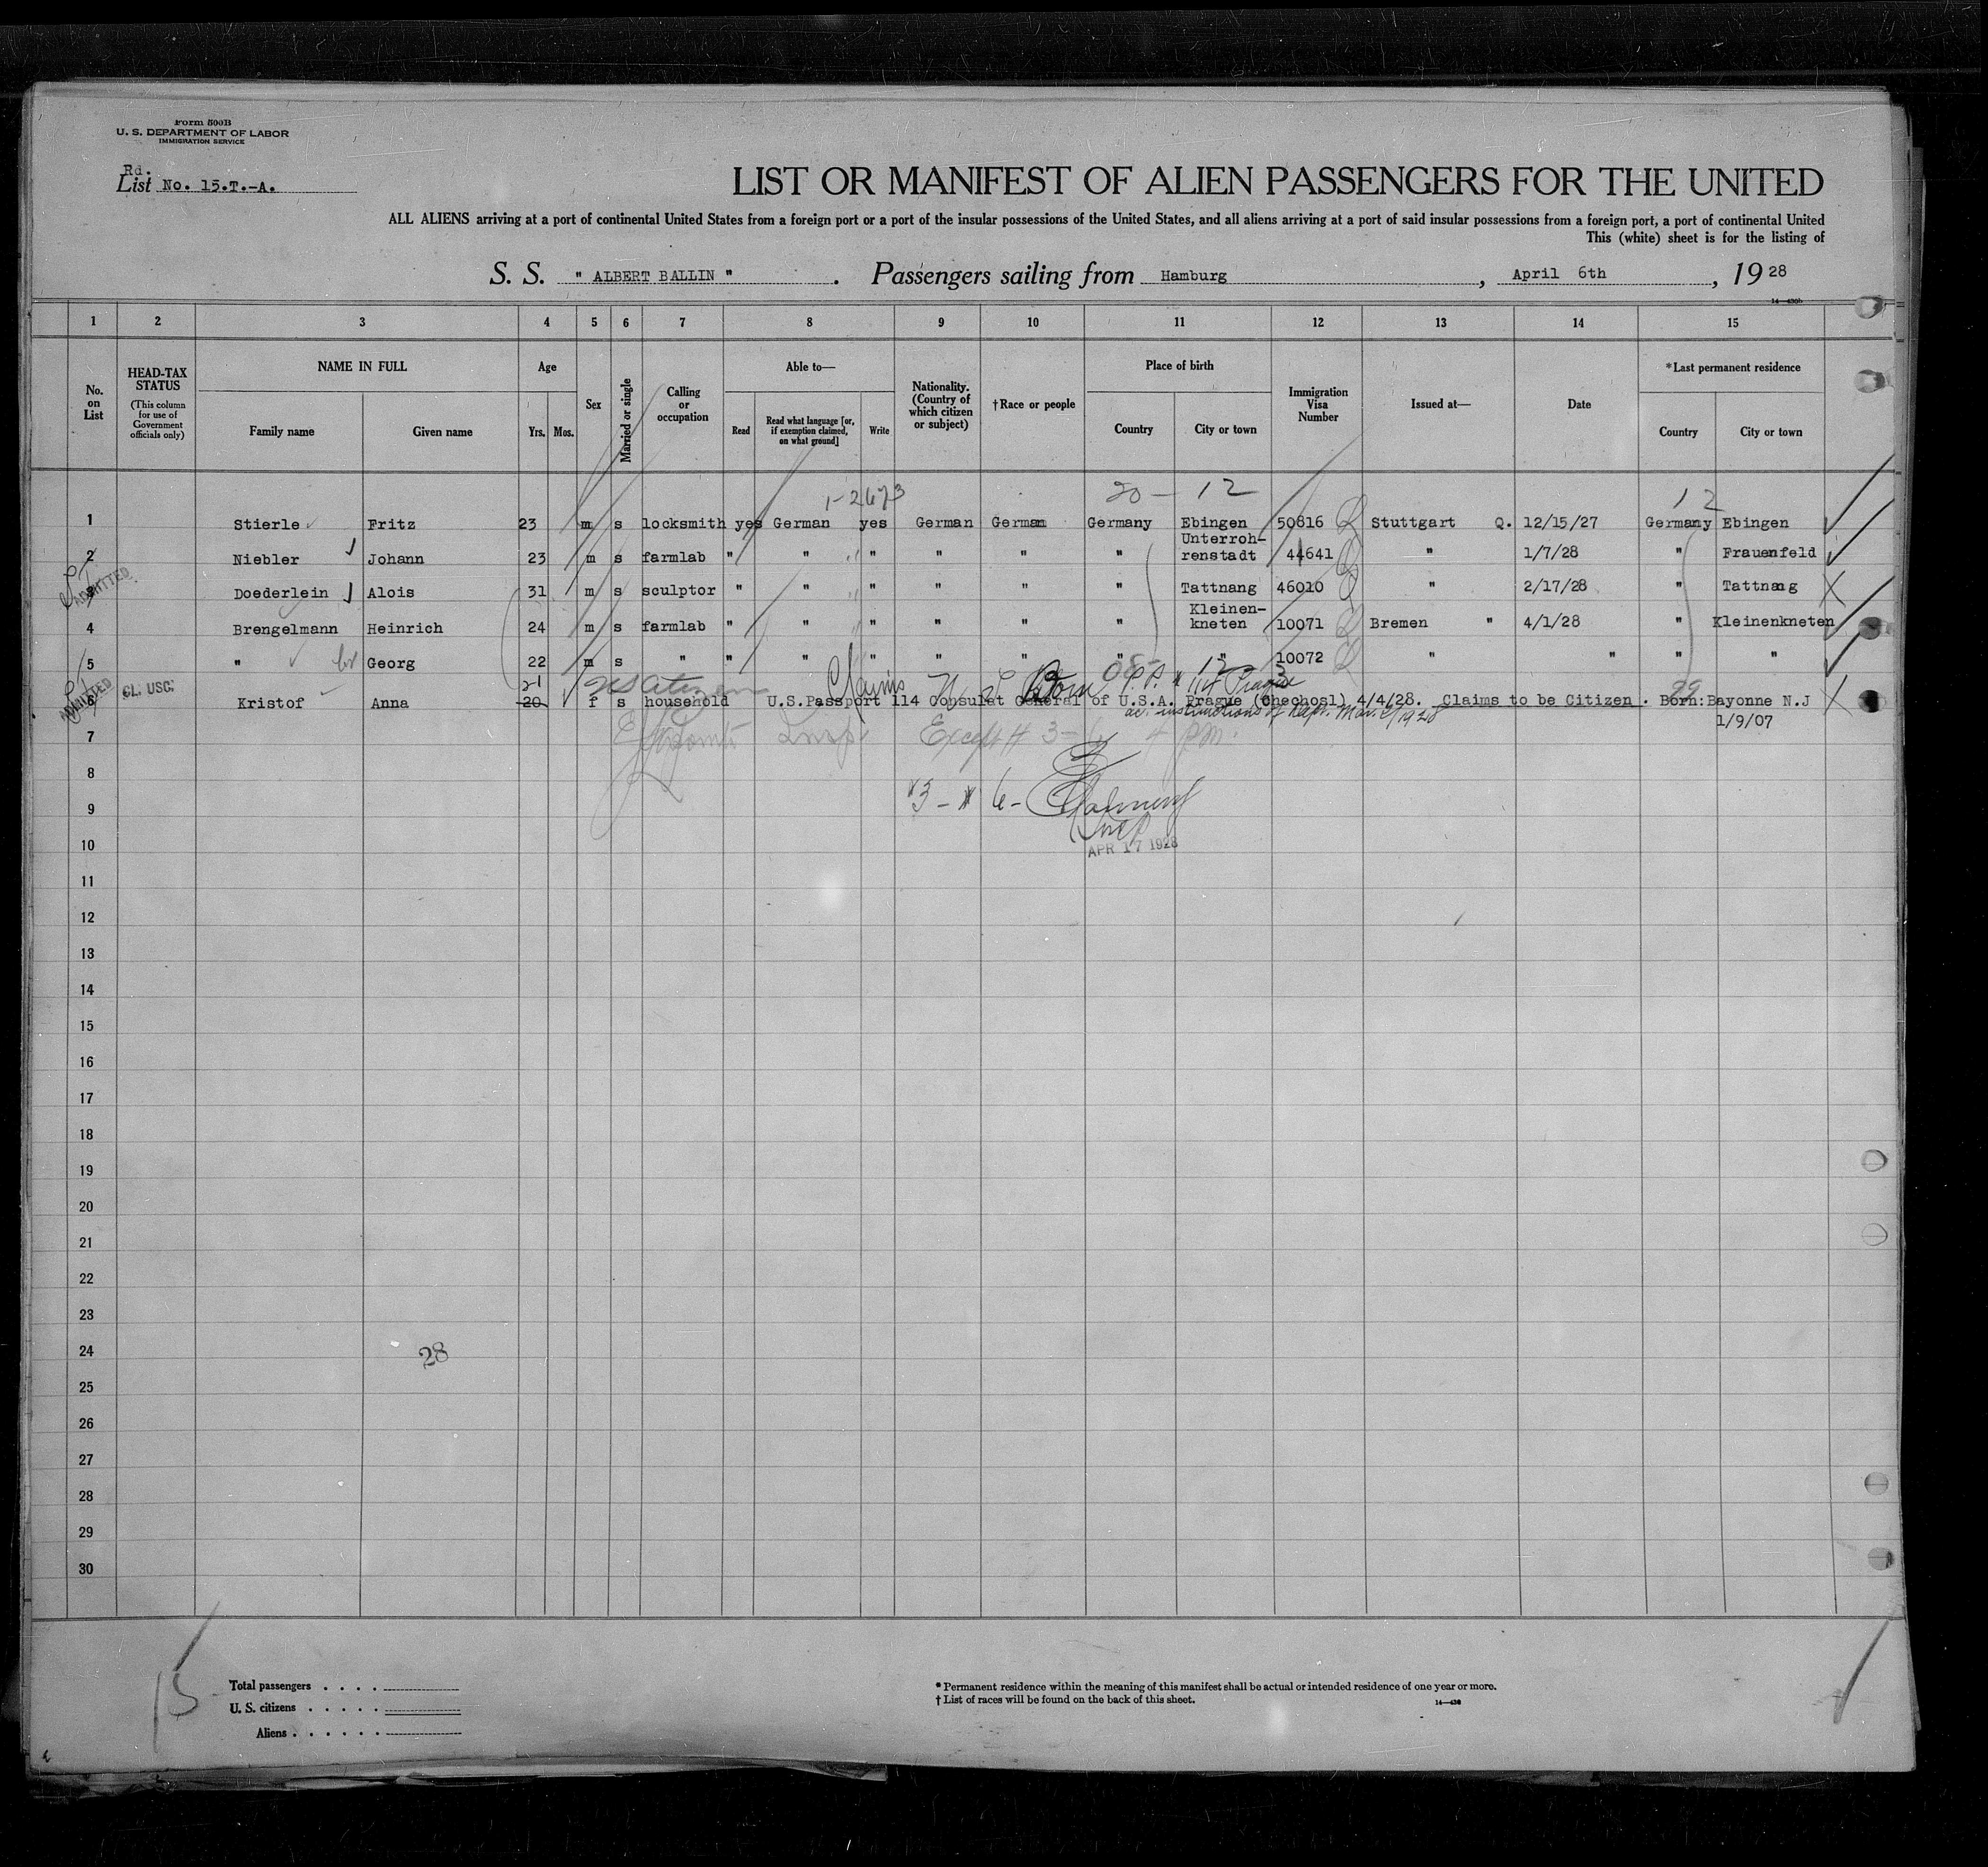 Form 500B
U. S. DEPARTMENT OF LABOR
IMMIGRATION SERVICE
Rd.
List No. 15.T.-A.
LIST OR MANIFEST OF ALIEN PASSENGERS FOR THE UNITED
ALL ALIENS arriving at a port of continental United States from a foreign port or a port of the insular possessions of the United States, and all aliens arriving at a port of said insular possessions from a foreign port, a port of continental United
This (white) sheet is for the listing of
S. S. " ALBERT BALLIN " . Passengers sailing from Hamburg , April 6th , 19 28
14—430b
1 2 3 4 5 6 7 8 9 10 11 12 13 14 15
No. on List
HEAD-TAX STATUS
(This column for use of Government officials only)
NAME IN FULL
Family name Given name
Age
Yrs. Mos.
Sex
Married or single
Calling or occupation
Able to—
Read
Read what language [or, if exemption claimed, on what ground]
Write
Nationality. (Country of which citizen or subject)
†Race or people
Place of birth
Country City or town
Immigration Visa Number
Issued at—
Date
*Last permanent residence
Country City or town
1-2673 20 - 12 12
1 Stierle Fritz 23 m s locksmith yes German yes German German Germany Ebingen 50816 Stuttgart Q. 12/15/27 Germany Ebingen
2 Niebler Johann 23 m s farmlab " " " " " " Unterroh-renstadt 44641 " 1/7/28 " Frauenfeld
ADMITTED
3 Doederlein Alois 31 m s sculptor " " " " " " Tattnang 46010 " 2/17/28 " Tattnang
4 Brengelmann Heinrich 24 m s farmlab " " " " " " Kleinen-kneten 10071 Bremen " 4/1/28 " Kleinenkneten
5 " Georg 22 m s " " " " " " " " 10072 " " " "
21 US Citizen Claims Born P.P. # 114 Prague
ADMITTED
CL. USC.
6 Kristof Anna 20 f s household U.S.Passport 114 Consulat General of U.S.A. Prague (Chechosl) 4/4/28. Claims to be Citizen . Born:Bayonne N.J
1/9/07
99
ac. instructions of Dept. Mar. 1928
7 Insp Except # 3 - 6 4 pm.
8
#3 - # 6 -
9
Insp
APR 17 1928
10
11
12
13
14
15
16
17
18
19
20
21
22
23
24
28
25
26
27
28
29
30
15
Total passengers . . . .
U. S. citizens . . . . .
Aliens . . . . . .
* Permanent residence within the meaning of this manifest shall be actual or intended residence of one year or more.
† List of races will be found on the back of this sheet.
14—430